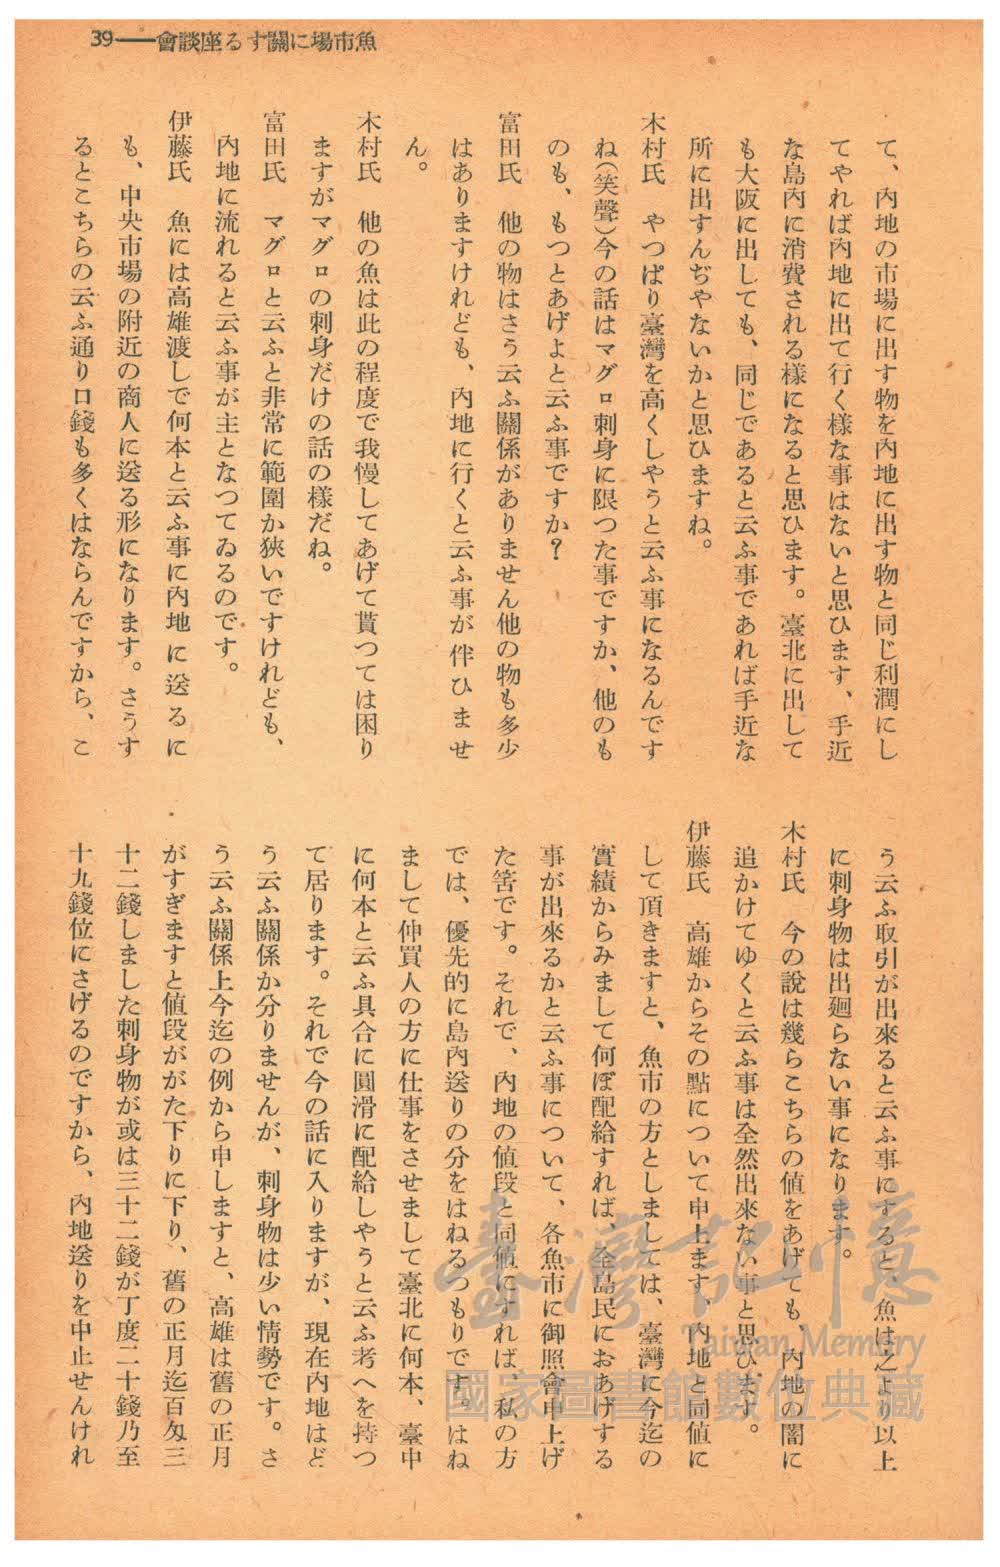 39——會談座るす關に場市魚
て、內地の市場に出す物を內地に出す物と同じ利潤にし
てやれば內地に出て行く樣な事はないと思ひます、手近
な島內に消費される樣になると思ひます。臺北に出して
も大阪に出しても、同じであると云ふ事であれば手近な
所に出すんぢやないかと思ひますね。
木村氏　やつぱり臺灣を高くしやうと云ふ事になるんです
ね（笑聲）今の話はマグロ刺身に限つた事ですか、他のも
のも、もつとあげよと云ふ事ですか？
富田氏　他の物はさう云ふ關係がありません他の物も多少
はありますけれども、內地に行くと云ふ事が伴ひませ
ん。
木村氏　他の魚は此の程度で我慢してあげて貰つては困り
ますがマグロの刺身だけの話の樣だね。
富田氏　マグロと云ふと非常に範圍か狹いですけれども、
內地に流れると云ふ事が主となつてゐるのです。
伊藤氏　魚には高雄渡しで何本と云ふ事に內地に送るに
も、中央市場の附近の商人に送る形になります。さうす
るとこちらの云ふ通り口錢も多くはならんですから、こ
う云ふ取引が出來ると云ふ事にすると、魚は之より以上
に刺身物は出廻らない事になります。
木村氏　今の說は幾らこちらの値をあげても、內地の闇に
追かけてゆくと云ふ事は全然出來ない事と思ひます。
伊藤氏　高雄からその點について申上ます、內地と同値に
して頂きますと、魚市の方としましては、臺灣に今迄の
實績からみまして何ぼ配給すれば、全島民におあげする
事が出來るかと云ふ事について、各魚市に御照會申上げ
た筈です。それで、內地の値段と同値にすれば、私の方
では、優先的に島內送りの分をはねるつもりです。はね
まして仲買人の方に仕事をさせまして臺北に何本、臺中
に何本と云ふ具合に圓滑に配給しやうと云ふ考へを持つ
て居ります。それで今の話に入りますが、現在內地はど
う云ふ關係か分りませんが、刺身物は少い情勢です。さ
う云ふ關係上今迄の例から申しますと、高雄は舊の正月
がすぎますと値段ががた下りに下り、舊の正月迄百匁三
十二錢しました刺身物が或は三十二錢が丁度二十錢乃至
十九錢位にさげるのですから、內地送りを中止せんけれ
臺灣記憶
Taiwan Memory
國家圖書館數位典藏